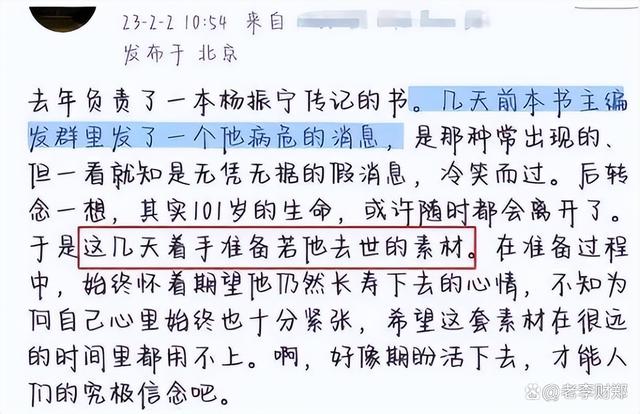 23-2-2 10:54 来自
发布于 北京
去年负责了一本杨振宁传记的书。几天前本书主编
发群里发了一个他病危的消息，是那种常出现的、
但一看就知是无凭无据的假消息，冷笑而过。后转
念一想，其实101岁的生命，或许随时都会离开了。
于是这几天着手准备若他去世的素材。在准备过程
中，始终怀着期望他仍然长寿下去的心情，不知为
何自己心里始终也十分紧张，希望这套素材在很远
的时间里都用不上。啊，好像期盼活下去，才能人
们的究极信念吧。
老李财郑